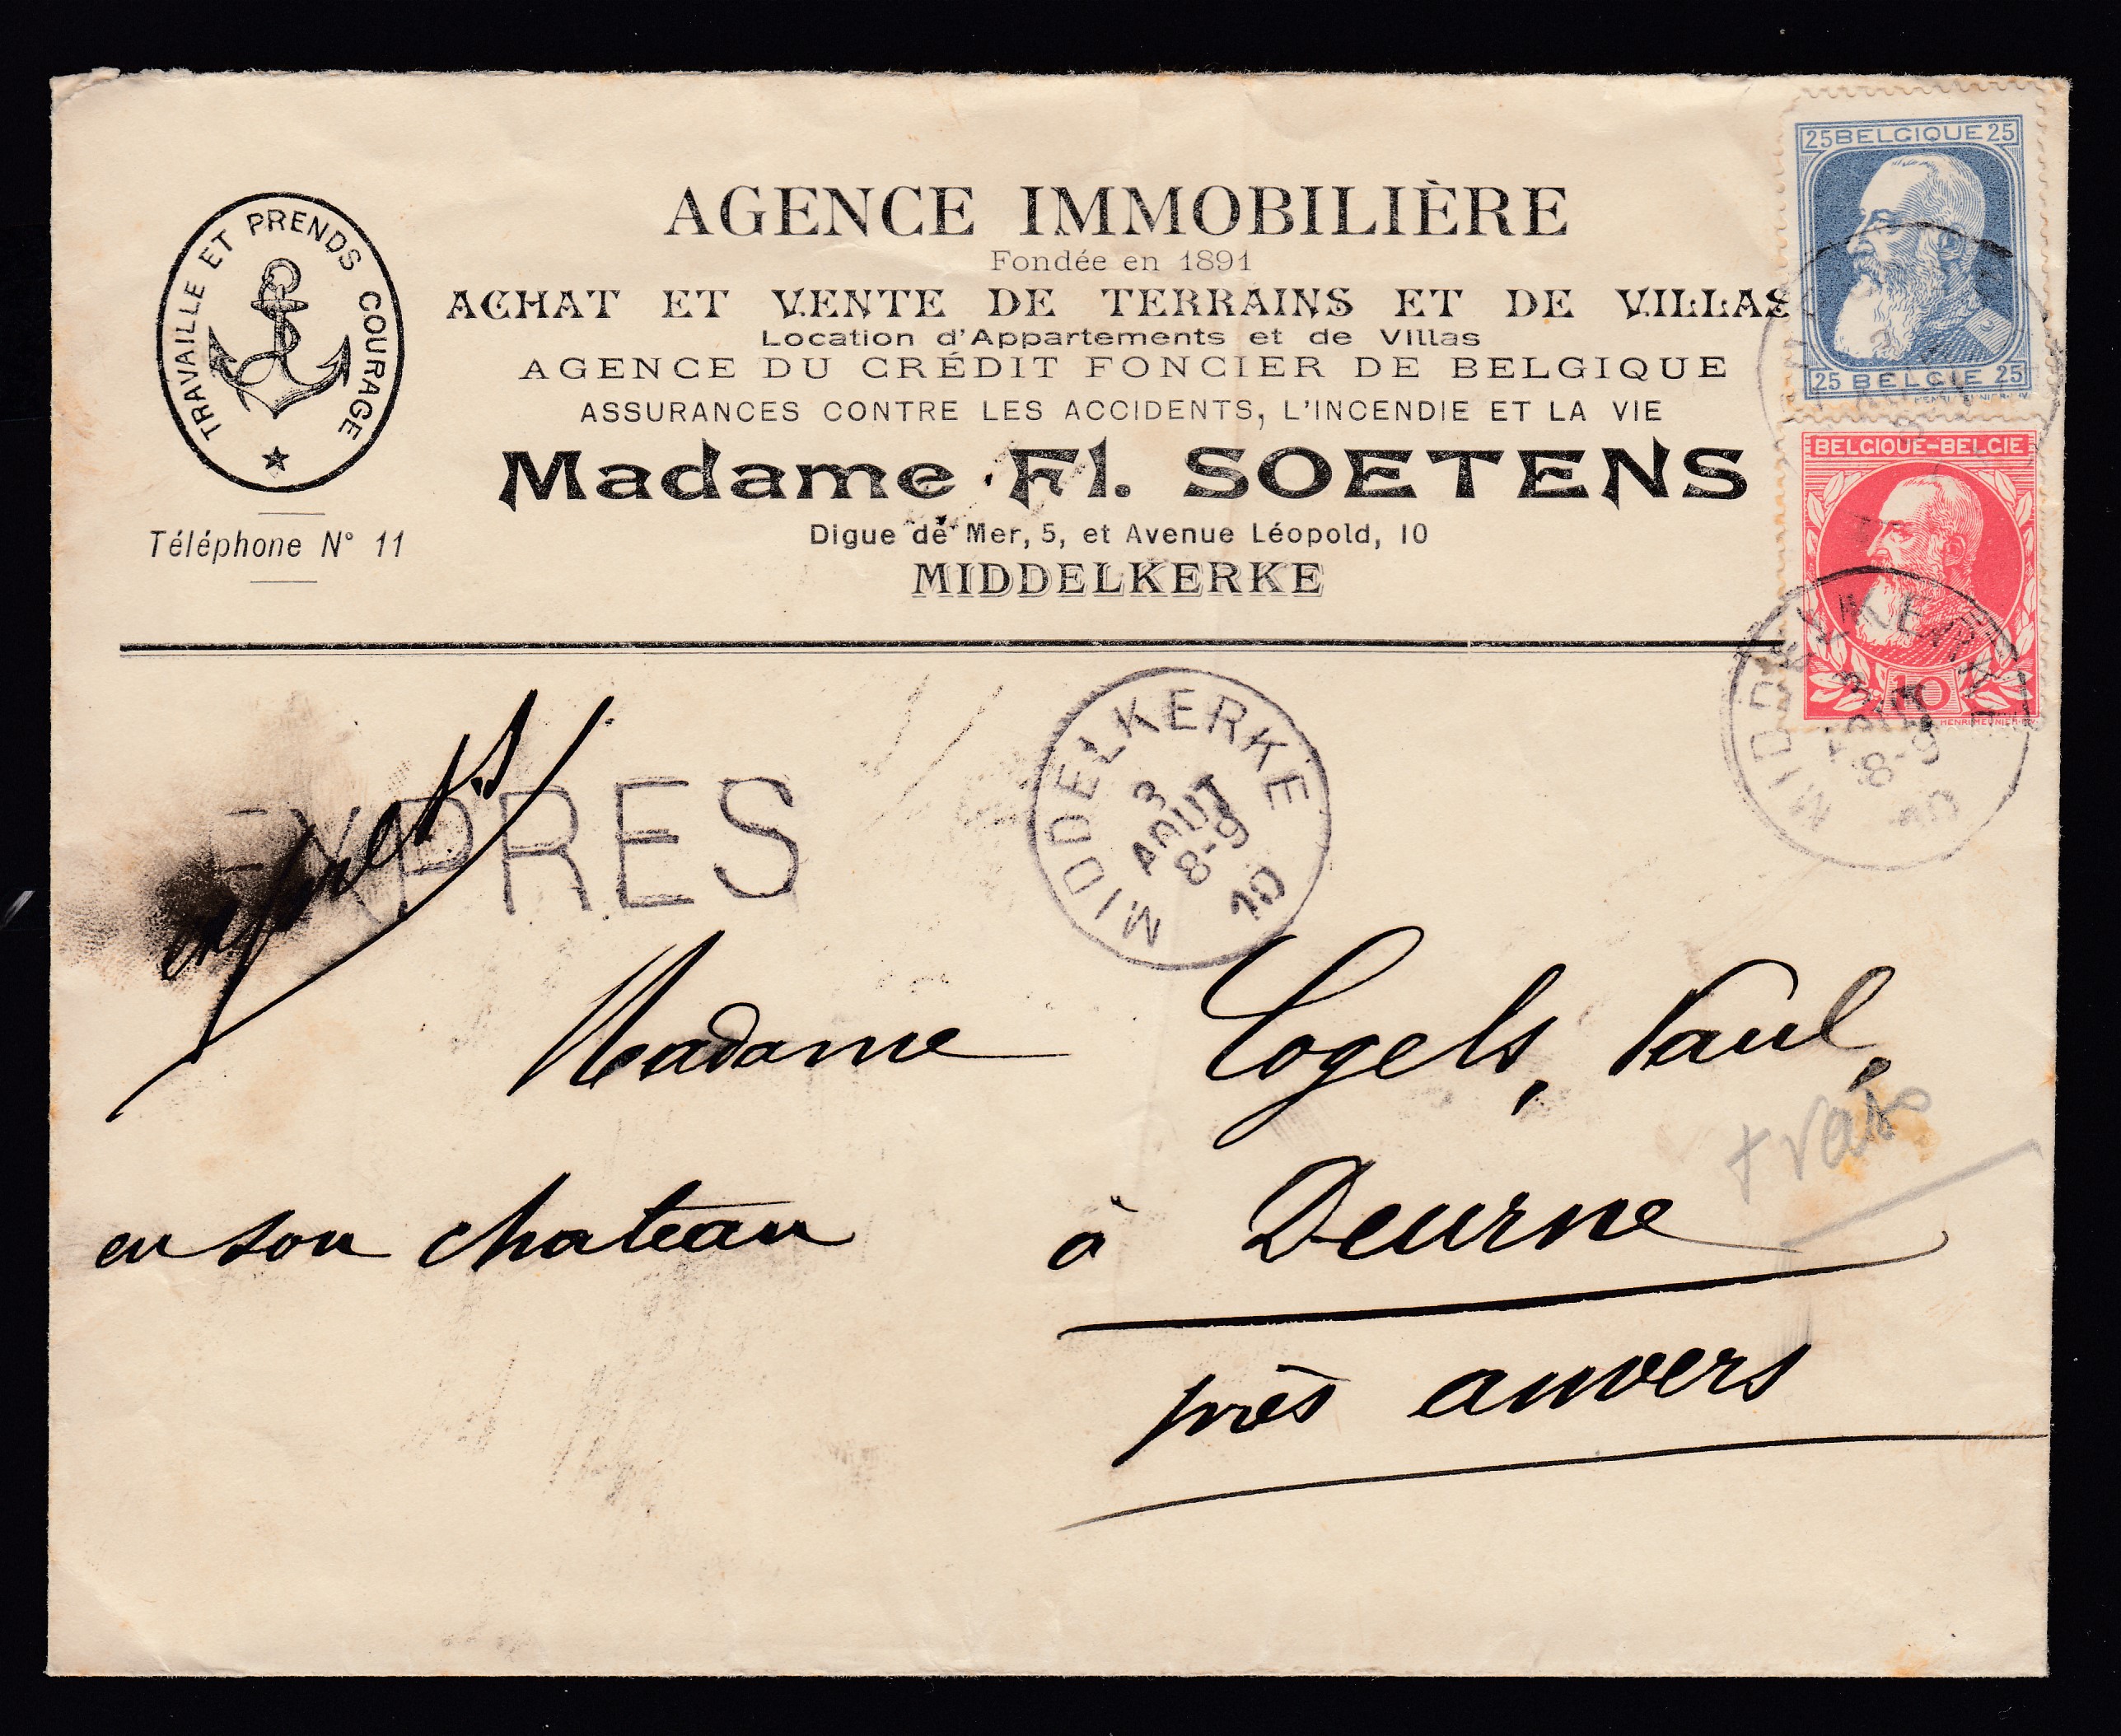 AGENCE IMMOBILIÈRE
Fondée en 1891
ACHAT ET VENTE DE TERRAINS ET DE VILLAS
Location d'Appartements et de Villas
AGENCE DU CRÉDIT FONCIER DE BELGIQUE
ASSURANCES CONTRE LES ACCIDENTS, L'INCENDIE ET LA VIE
Madame Fl. SOETENS
Digue de Mer, 5, et Avenue Léopold, 10
MIDDELKERKE
TRAVAILLE ET PRENDS COURAGE
Téléphone N° 11
25 BELGIQUE 25
25 BELGIE 25
BELGIQUE-BELGIE
10
HENRI MEUNIER·INV.
MIDDELKERKE
3
AOUT
8-9
10
MIDDELKERKE
3
AOUT
8-9
10
EXPRES
express
Madame Cogels, Paul,
en son chateau à Deurne
près anvers